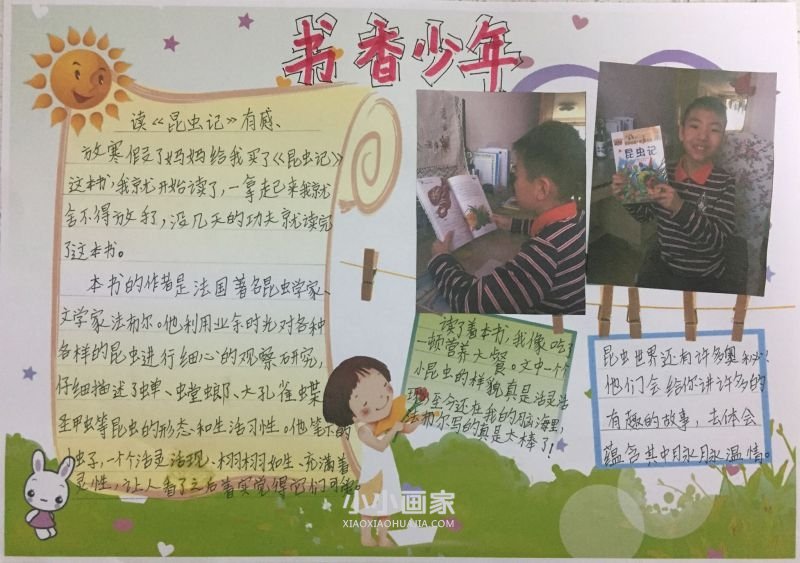 书香少年
读《昆虫记》有感、
放寒假了妈妈给我买了《昆虫记》
这本书,我就开始读了,一拿起来我就
舍不得放手了,没几天的功夫就读完
了这本书。
本书的作者是法国著名昆虫学家、
文学家法布尔。他利用业余时光对各种
各样的昆虫进行细心的观察研究,
仔细描述了蝉、虫堂螂、大孔雀蝶
甲虫等昆虫的形态和生活习性。他笔下的
虫子,一个个活灵活现、栩栩如生、充满着
灵性,让人看了之后着实觉得它们可爱。
昆虫记
读了着本书,我像吃了
一顿营养大餐。文中一个个
小昆虫的样貌真是活灵活
现,至今还在我的脑海里,
法布尔写的真是太棒了!
昆虫世界还有许多奥秘!
他们会给你讲许多的
有趣的故事,去体会
蕴含其中脉脉温情。
小小画家
XIAOXIAOHUAJIA.COM